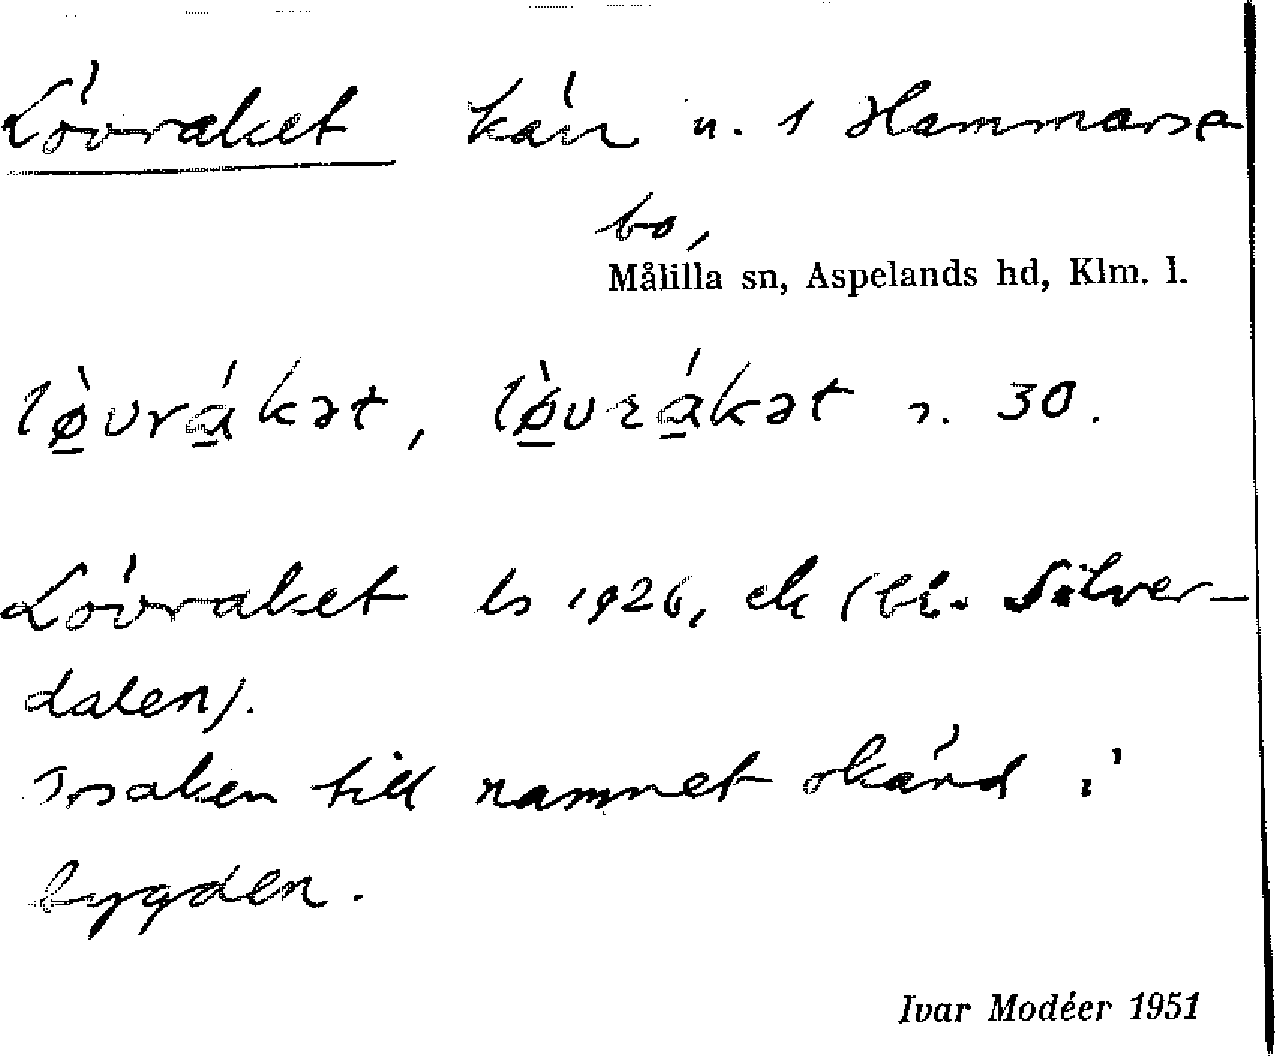 Lövraket kärr u. 1 Hammarse-
bo,
Målilla sn, Aspelands hd, Klm. l.
lø̀vrákət, lø̀vrákət s. 30.
Lövraket ls 1926, ek (bl. Silver-
dalen).
Orsaken till namnet okänd i
bygden.
Ivar Modéer 1951